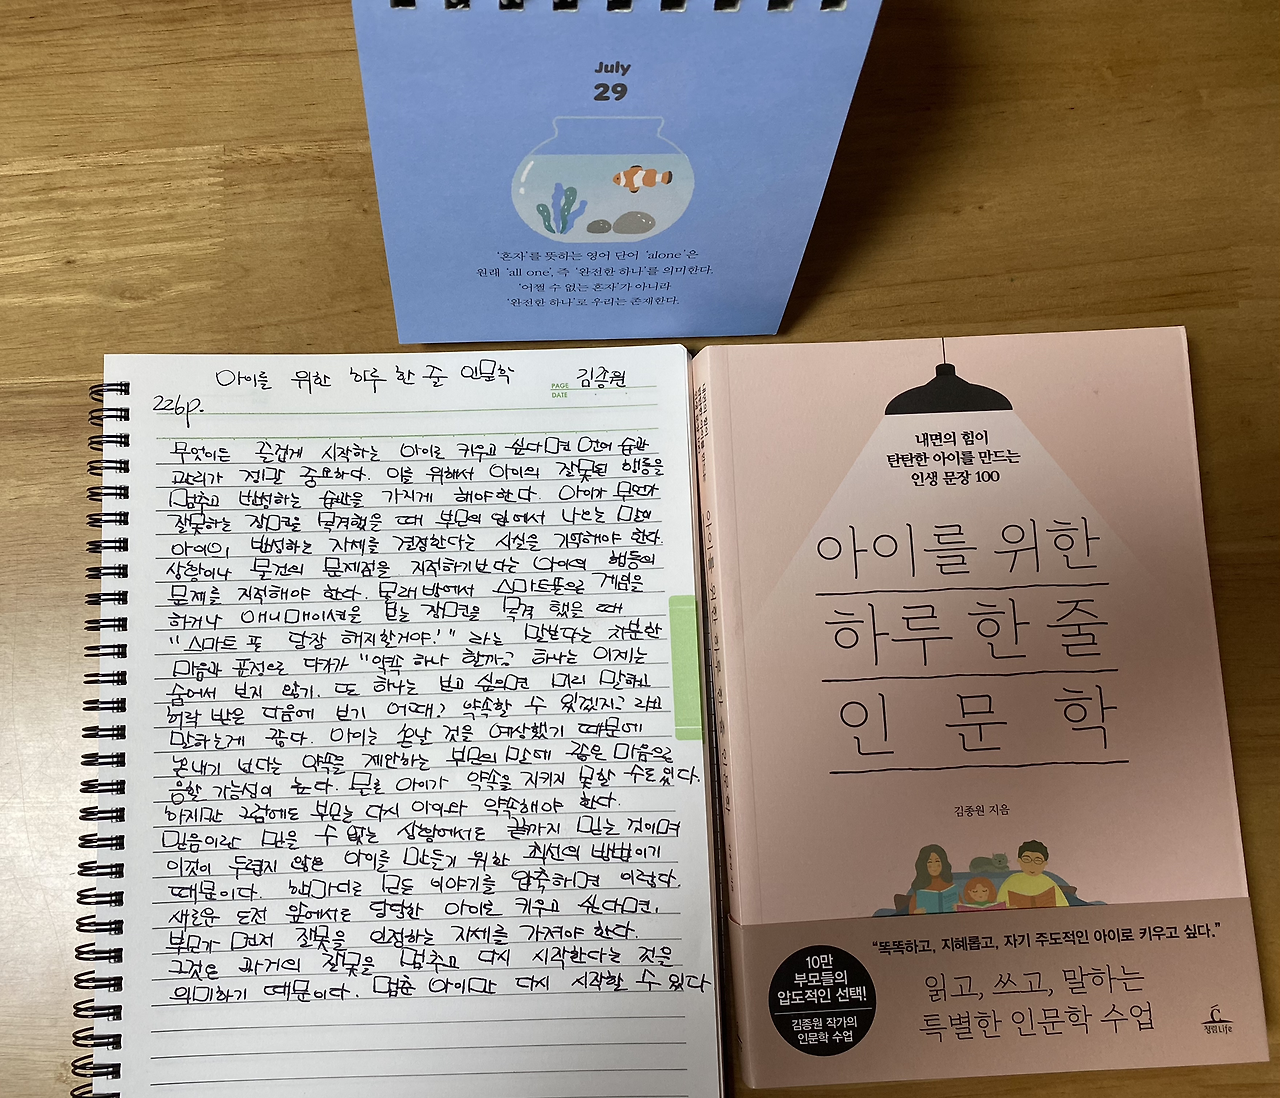 July
29
'혼자'를 뜻하는 영어 단어 'alone'은
원래 'all one', 즉 '완전한 하나'를 의미한다.
'어쩔 수 없는 혼자'가 아니라
'완전한 하나'로 우리는 존재한다.
아이를 위한 하루 한 줄 인문학
PAGE
DATE
김종원
226p.
무엇이든 즐겁게 시작하는 아이로 키우고 싶다면 언어 습관
관리가 정말 중요하다. 이를 위해서 아이의 잘못된 행동을
멈추고 반성하는 습관을 가지게 해야 한다. 아이가 무언가
잘못하는 장면을 목격했을 때 부모의 입에서 나오는 말이
아이의 반성하는 자세를 결정한다는 사실을 기억해야 한다.
상황이나 물건의 문제점을 지적하기보다는 아이의 행동의
문제를 지적해야 한다. 몰래 방에서 스마트폰으로 게임을
하거나 애니메이션을 보는 장면을 목격 했을 때
"스마트 폰 당장 해지할거야!" 라는 말보다는 차분한
마음과 표정으로 다가가 "약속 하나 할까? 하나는 이제는
숨어서 보지 않기. 또 하나는 보고 싶으면 미리 말하고
허락 받은 다음에 보기 어때? 약속할 수 있겠지? 라고
말하는게 좋다. 아이는 혼날 것을 예상했기 때문에
혼내기 보다는 약속을 제안하는 부모의 말에 좋은 마음으로
응할 가능성이 높다. 물론 아이가 약속을 지키지 못할 수도 있다.
하지만 그럼에도 부모는 다시 아이와 약속해야 한다.
믿음이란 믿을 수 없는 상황에서도 끝까지 믿는 것이며
이것이 두렵지 않은 아이를 만들기 위한 최선의 방법이기
때문이다. 한마디로 모든 이야기를 압축하면 이렇다.
새로운 도전 앞에서도 당당한 아이로 키우고 싶다면,
부모가 먼저 잘못을 인정하는 자세를 가져야 한다.
그것은 과거의 잘못을 멈추고 다시 시작한다는 것을
의미하기 때문이다. 멈춘 아이만 다시 시작할 수 있다
아이를 위한 하루 한 줄 인문학
내면의 힘이
탄탄한 아이를 만드는
인생 문장 100
아이를 위한
하루 한 줄
인문학
김종원 지음
"똑똑하고, 지혜롭고, 자기 주도적인 아이로 키우고 싶다."
읽고, 쓰고, 말하는
특별한 인문학 수업
10만
부모들의
압도적인 선택!
김종원 작가의
인문학 수업
청림Life